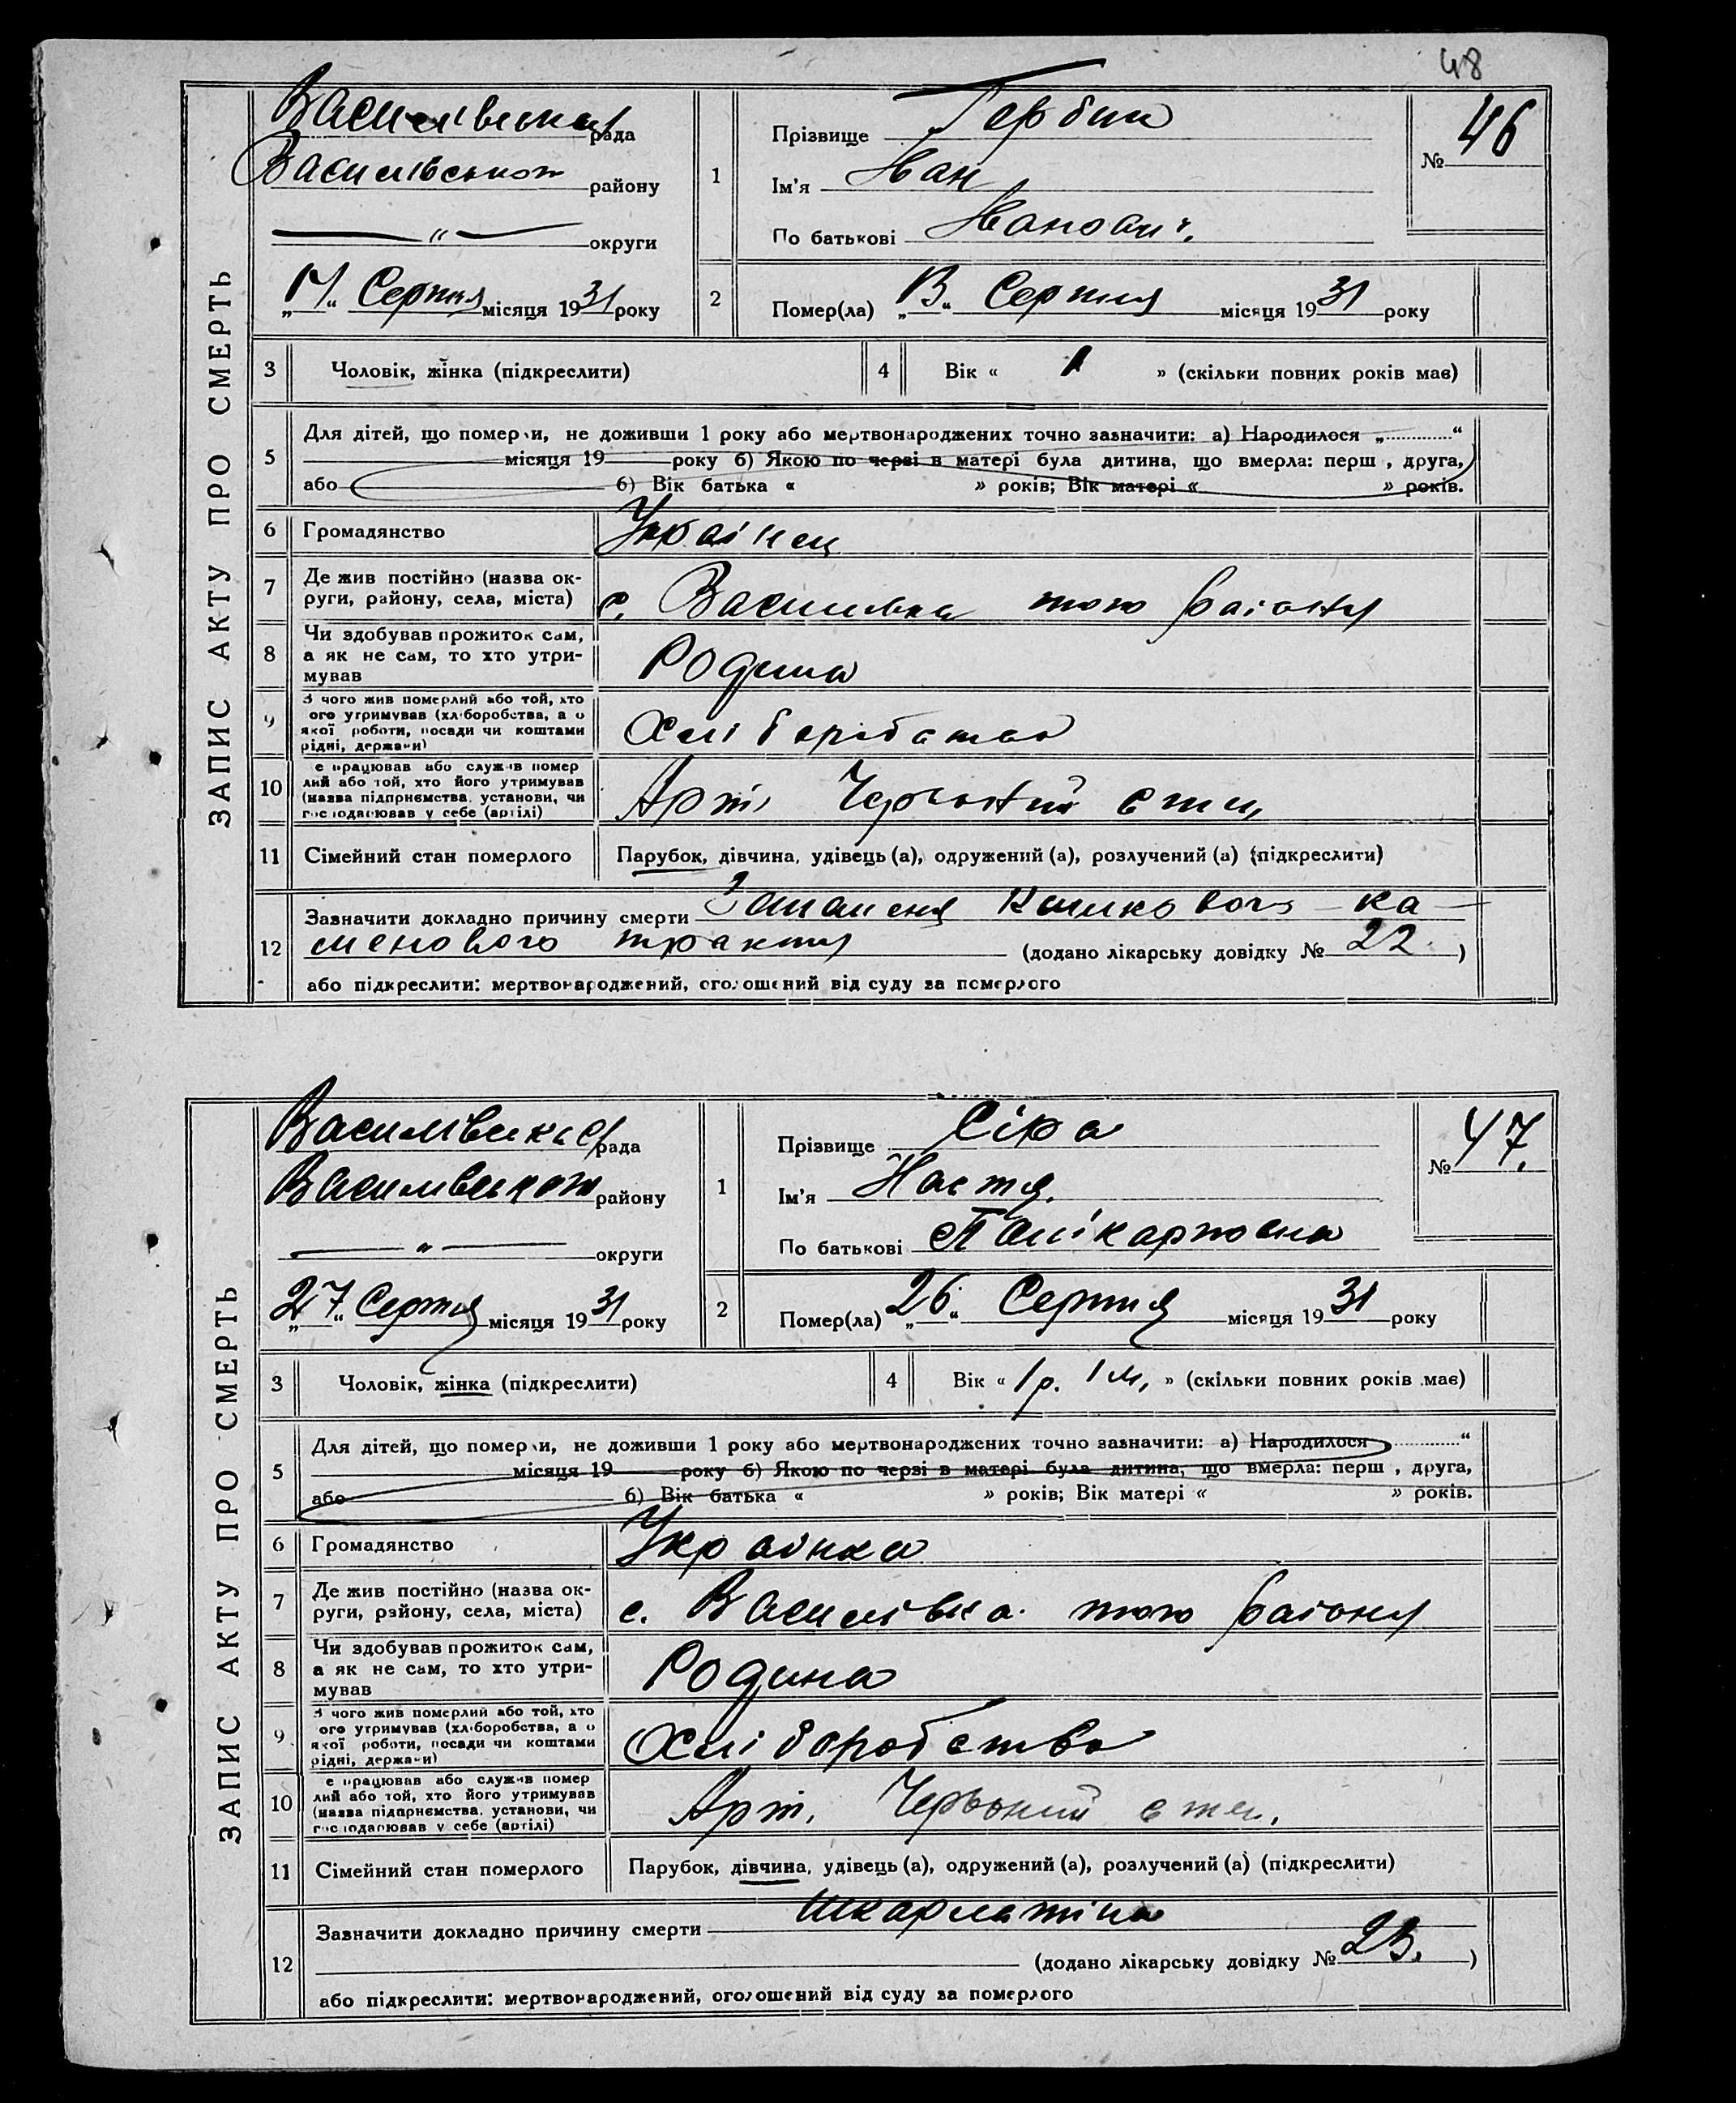 48
ЗАПИС АКТУ ПРО СМЕРТЬ
Василівська рада
Василівського району
— " — округи
„17“ Серпня місяця 1931 року
1
Прізвище Гербин
Ім'я Иван
По батькові Иванович.
№ 46
2
Помер(ла) „13“ Серпня місяця 1931 року
3 Чоловік, жінка (підкреслити)
4 Вік « 1 » (скільки повних років має)
5 Для дітей, що померли, не доживши 1 року або мертвонароджених точно зазначити: а) Народилося „............“
місяця 19 року б) Якою по черзі в матері була дитина, що вмерла: перш , друга,
або 6) Вік батька « » років; Вік матері « » років.
6 Громадянство Українец
7 Де жив постійно (назва ок-
руги, району, села, міста) с. Василівка того району
8 Чи здобував прожиток сам,
а як не сам, то хто утри-
мував Родина
9 З чого жив померлий або той, хто
ого утримував (хліборобства, а о
якої роботи, посади чи коштами
рідні, держави) Хліборобство
10 е працював або служив помер
лий або той, хто його утримував
(назва підприємства, установи, чи
господарював у себе (артілі) Арт. Червоний степ,
11 Сімейний стан померлого Парубок, дівчина, удівець (а), одружений (а), розлучений (а) (підкреслити)
12 Зазначити докладно причину смерти Запалення кишково го - ка
менового тракту (додано лікарську довідку № 22. )
або підкреслити: мертвонароджений, оголошений від суду за померлого
ЗАПИС АКТУ ПРО СМЕРТЬ
Василівська рада
Василівського району
— " — округи
„27“ Серпня місяця 1931 року
1
Прізвище Сіра
Ім'я Настя.
По батькові Полікарповна
№ 47.
2
Помер(ла) „26“ Серпня місяця 1931 року
3 Чоловік, жінка (підкреслити)
4 Вік « 1 р. 1 м. » (скільки повних років має)
5 Для дітей, що померли, не доживши 1 року або мертвонароджених точно зазначити: а) Народилося ............“
місяця 19 року б) Якою по черзі в матері була дитина, що вмерла: перш , друга,
або 6) Вік батька « » років; Вік матері « » років.
6 Громадянство Українка
7 Де жив постійно (назва ок-
руги, району, села, міста) с. Василівка. того району
8 Чи здобував прожиток сам,
а як не сам, то хто утри-
мував Родина
9 З чого жив померлий або той, хто
ого утримував (хліборобства, а о
якої роботи, посади чи коштами
рідні, держави) Хліборобство
10 е працював або служив помер
лий або той, хто його утримував
(назва підприємства, установи, чи
господарював у себе (артілі) Арт. Червоний степ.
11 Сімейний стан померлого Парубок, дівчина, удівець (а), одружений (а), розлучений (а) (підкреслити)
12 Зазначити докладно причину смерти Шкарлатіна
(додано лікарську довідку № 23. )
або підкреслити: мертвонароджений, оголошений від суду за померлого